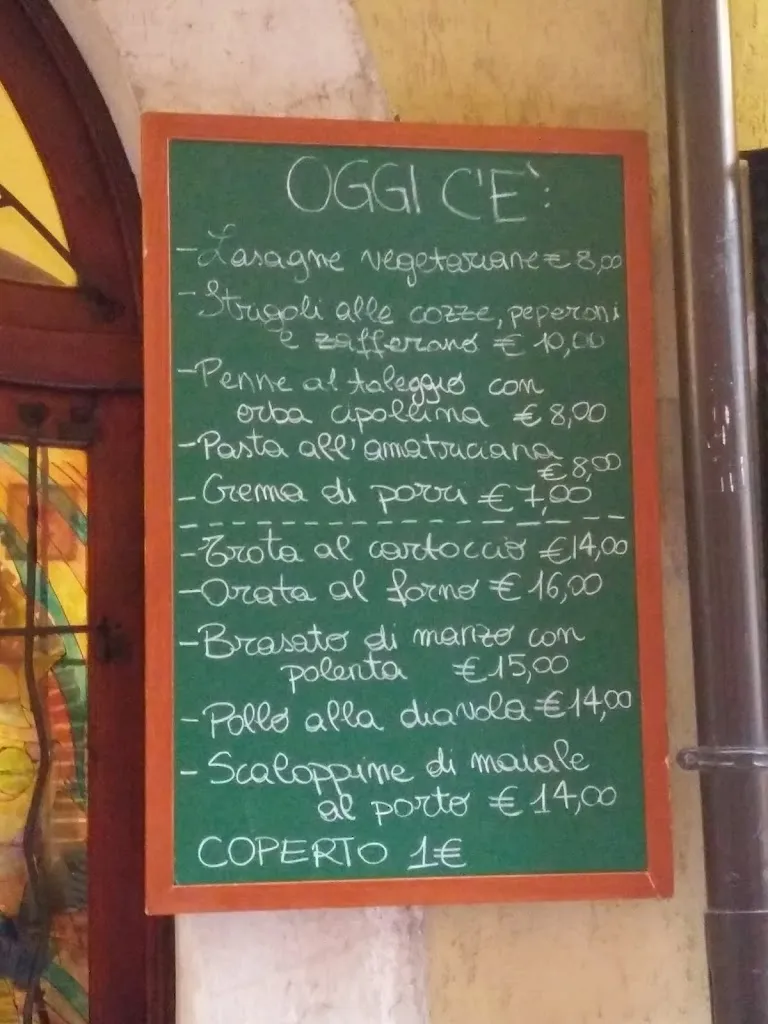 OGGI C'È:
- Lasagne vegetariane € 8,00
- Strigoli alle cozze, peperoni
e zafferano € 10,00
- Penne al taleggio con
erba cipollina € 8,00
- Pasta all'amatriciana
€ 8,00
- Crema di porri € 7,00
- Trota al cartoccio € 14,00
- Orata al forno € 16,00
- Brasato di manzo con
polenta € 15,00
- Pollo alla diavola € 14,00
- Scaloppine di maiale
al porto € 14,00
COPERTO 1€